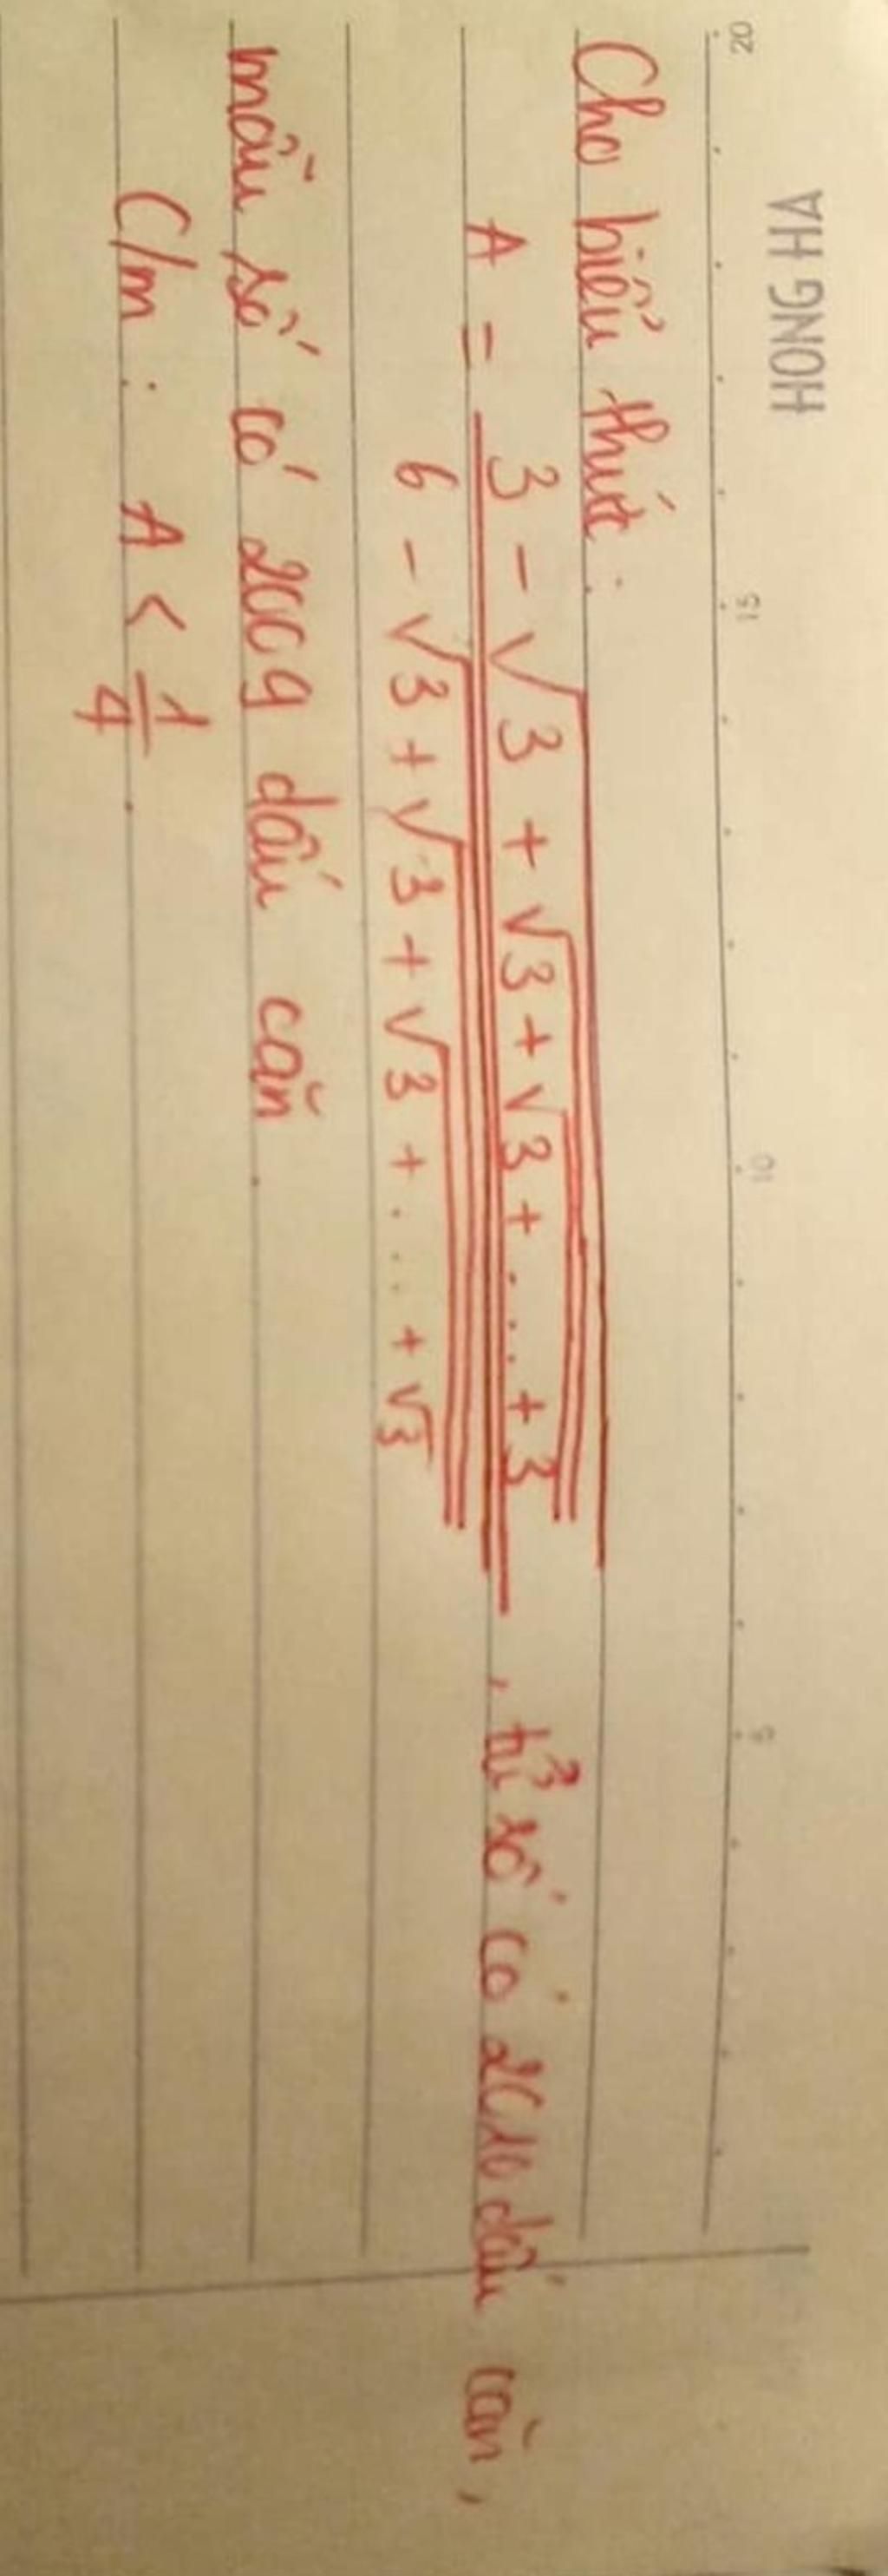 HONG HA
20 15 10 5
Cho biểu thức:
A = \frac{3 - \sqrt{3 + \sqrt{3 + \sqrt{3 + .... + 3}}}}{6 - \sqrt{3 + \sqrt{3 + \sqrt{3 + .... + \sqrt{3}}}}}, tử số có 2010 dấu căn,
mẫu số có 2009 dấu căn.
C/m: A < \frac{1}{4}.